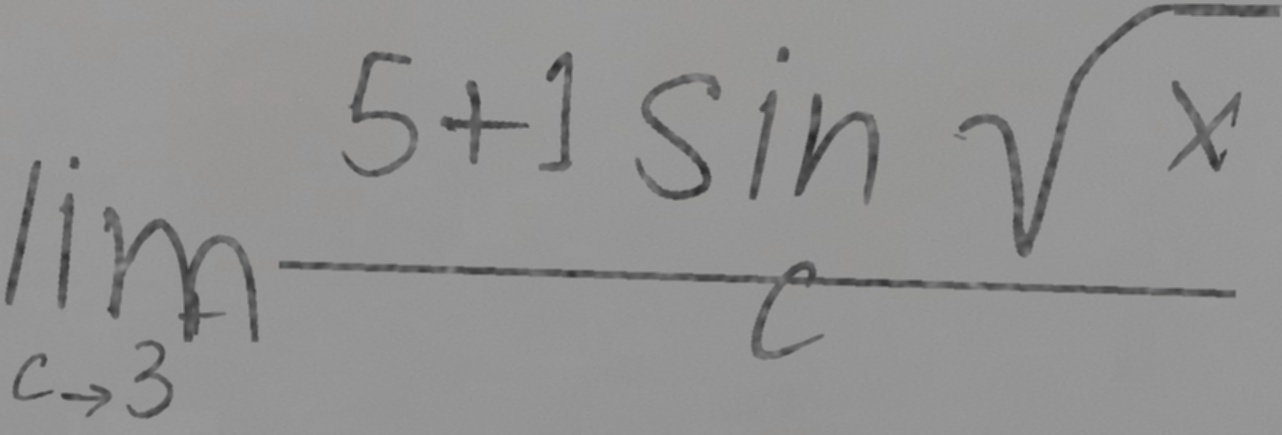 \lim_{c \to 3} \frac{5+1 \sin \sqrt{x}}{c}